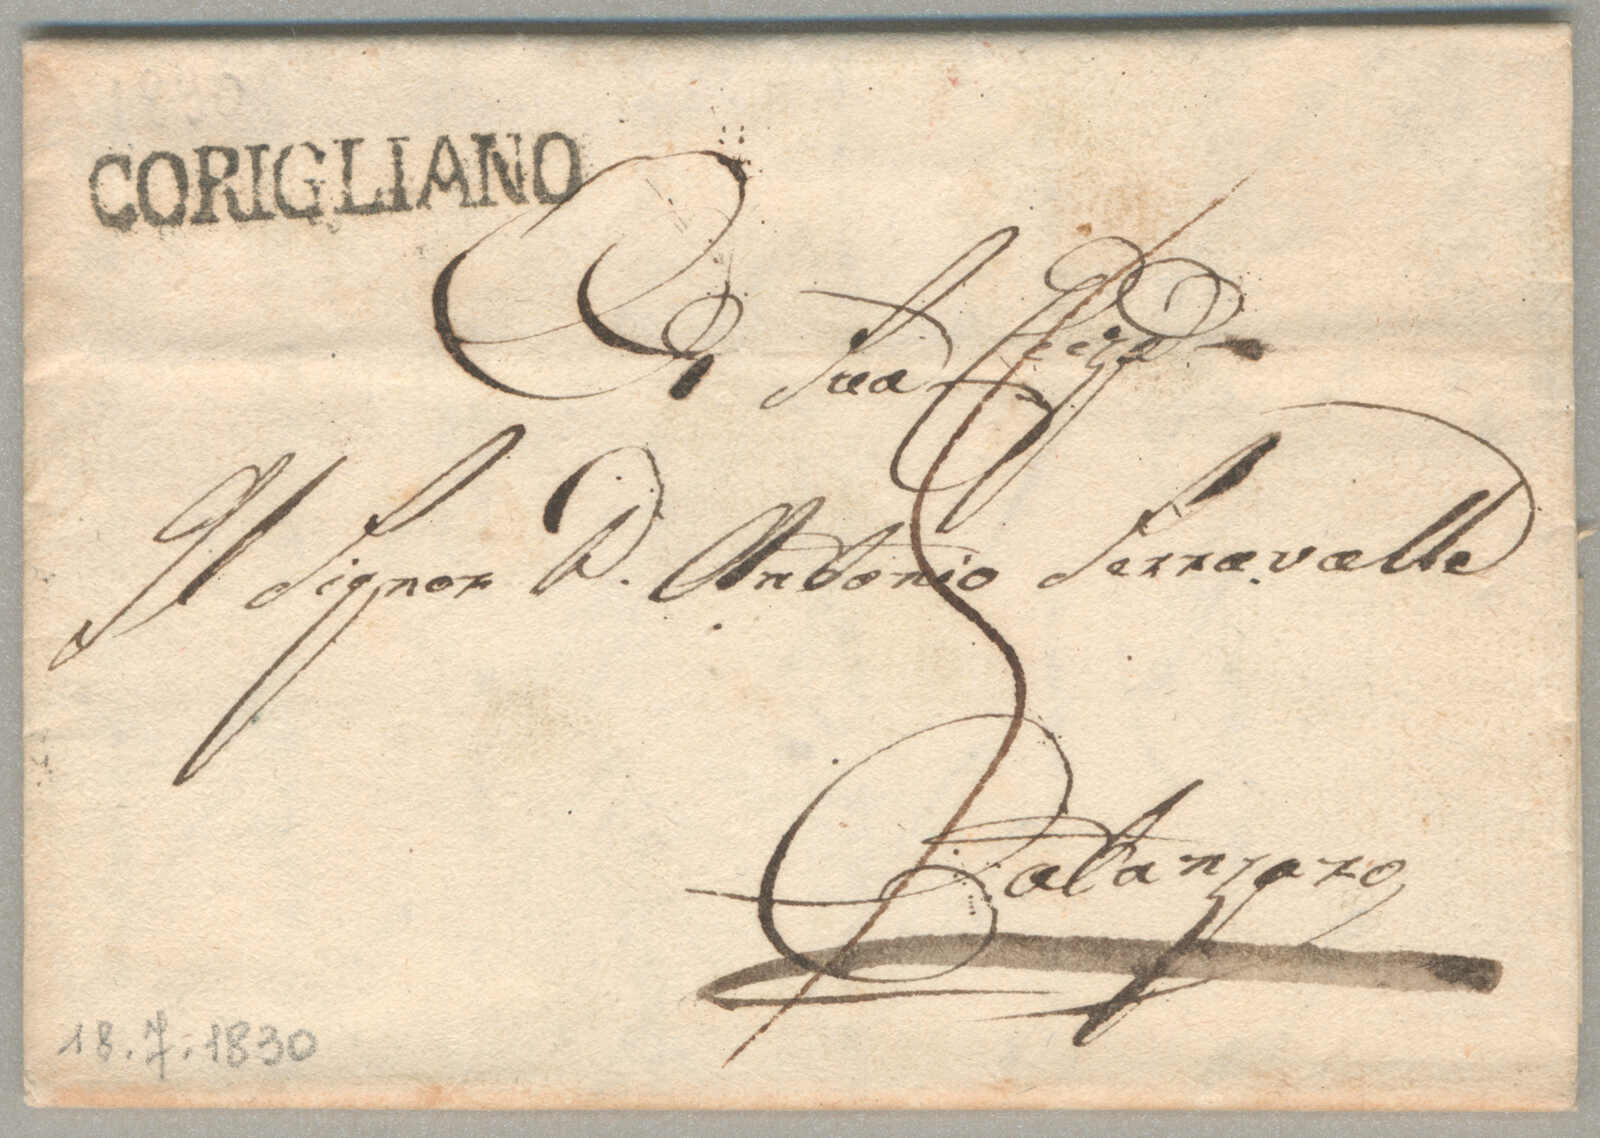 CORIGLIANO
A Sua Ecc.za
Il Signor D. Antonio Serravalle
Catanzaro
18.7.1830